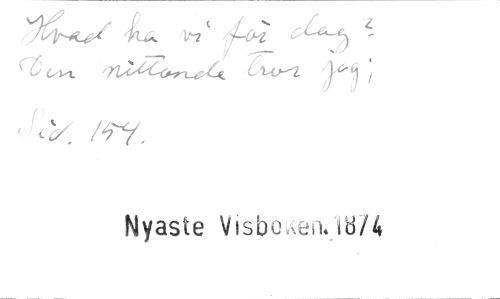 Hvad ha vi för dag?
Den nittonde tror jag;
Sid. 154.
Nyaste Visboken. 1874